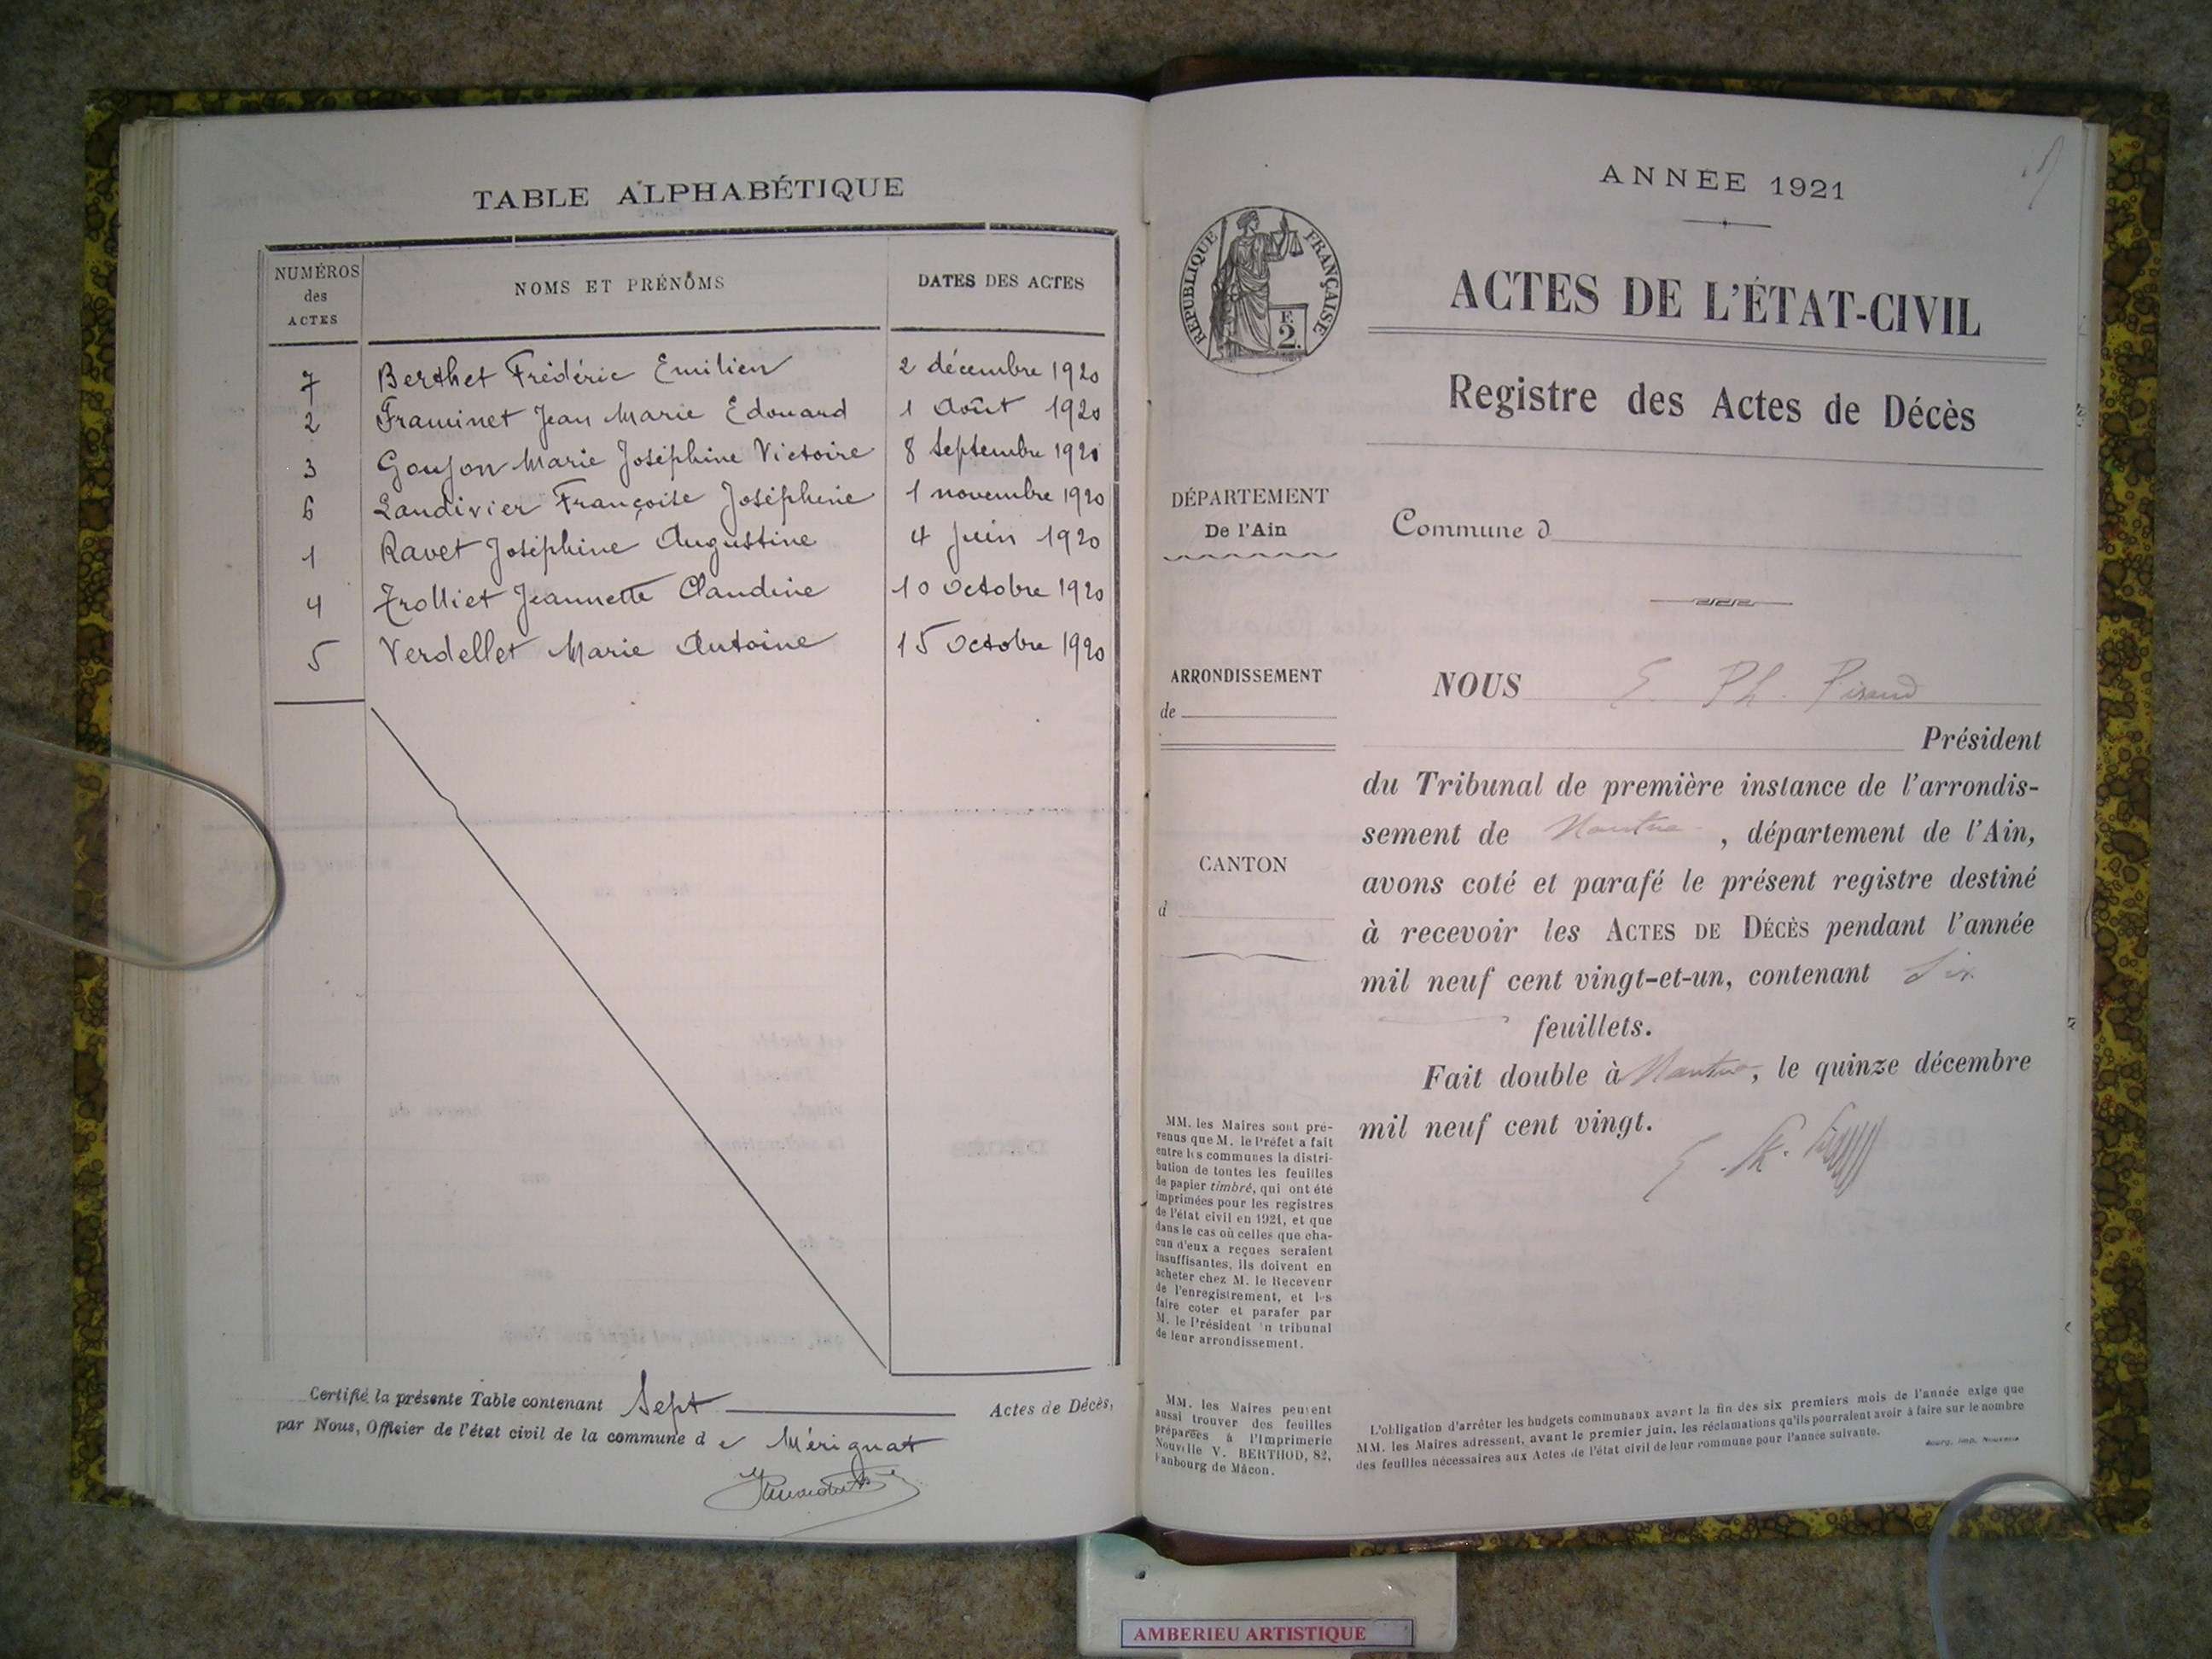 TABLE ALPHABÉTIQUE
NUMÉROS
des
ACTES
NOMS ET PRÉNOMS
DATES DES ACTES
7 Berthet Frédéric Emilien 2 décembre 1920
2 Framinet Jean Marie Edouard 1 Août 1920
3 Goujon Marie Joséphine Victoire 8 Septembre 1920
6 Landivier Françoise Joséphine 1 novembre 1920
1 Ravet Joséphine Augustine 4 Juin 1920
4 Trolliet Jeannette Claudine 10 Octobre 1920
5 Verdellet Marie Antoine 15 Octobre 1920
Certifié la présente Table contenant Sept Actes de Décès,
par Nous, Officier de l'état civil de la commune d e Mérignat
ANNÉE 1921
RÉPUBLIQUE FRANÇAISE
F.
2.
ACTES DE L'ÉTAT-CIVIL
Registre des Actes de Décès
DÉPARTEMENT
De l'Ain
Commune d
ARRONDISSEMENT
de
CANTON
d
NOUS E. Ph.
Président
du Tribunal de première instance de l'arrondis-
sement de Nantua, département de l'Ain,
avons coté et parafé le présent registre destiné
à recevoir les ACTES DE DÉCÈS pendant l'année
mil neuf cent vingt-et-un, contenant Six
feuillets.
Fait double à Nantua, le quinze décembre
mil neuf cent vingt.
MM. les Maires sont pré-
venus que M. le Préfet a fait
entre les communes la distri-
bution de toutes les feuilles
de papier timbré, qui ont été
imprimées pour les registres
de l'état civil en 1921, et que
dans le cas où celles que cha-
cun d'eux a reçues seraient
insuffisantes, ils doivent en
acheter chez M. le Receveur
de l'enregistrement, et les
faire coter et parafer par
M. le Président du tribunal
de leur arrondissement.
MM. les Maires peuvent
aussi trouver des feuilles
préparées à l'Imprimerie
Nouvelle V. BERTHOD, 82,
Faubourg de Mâcon.
L'obligation d'arrêter les budgets communaux avant la fin des six premiers mois de l'année exige que
MM. les Maires adressent, avant le premier juin, les réclamations qu'ils pourraient avoir à faire sur le nombre
des feuilles nécessaires aux Actes de l'état civil de leur commune pour l'année suivante.
Bourg, Imp. Nouvelle
AMBERIEU ARTISTIQUE